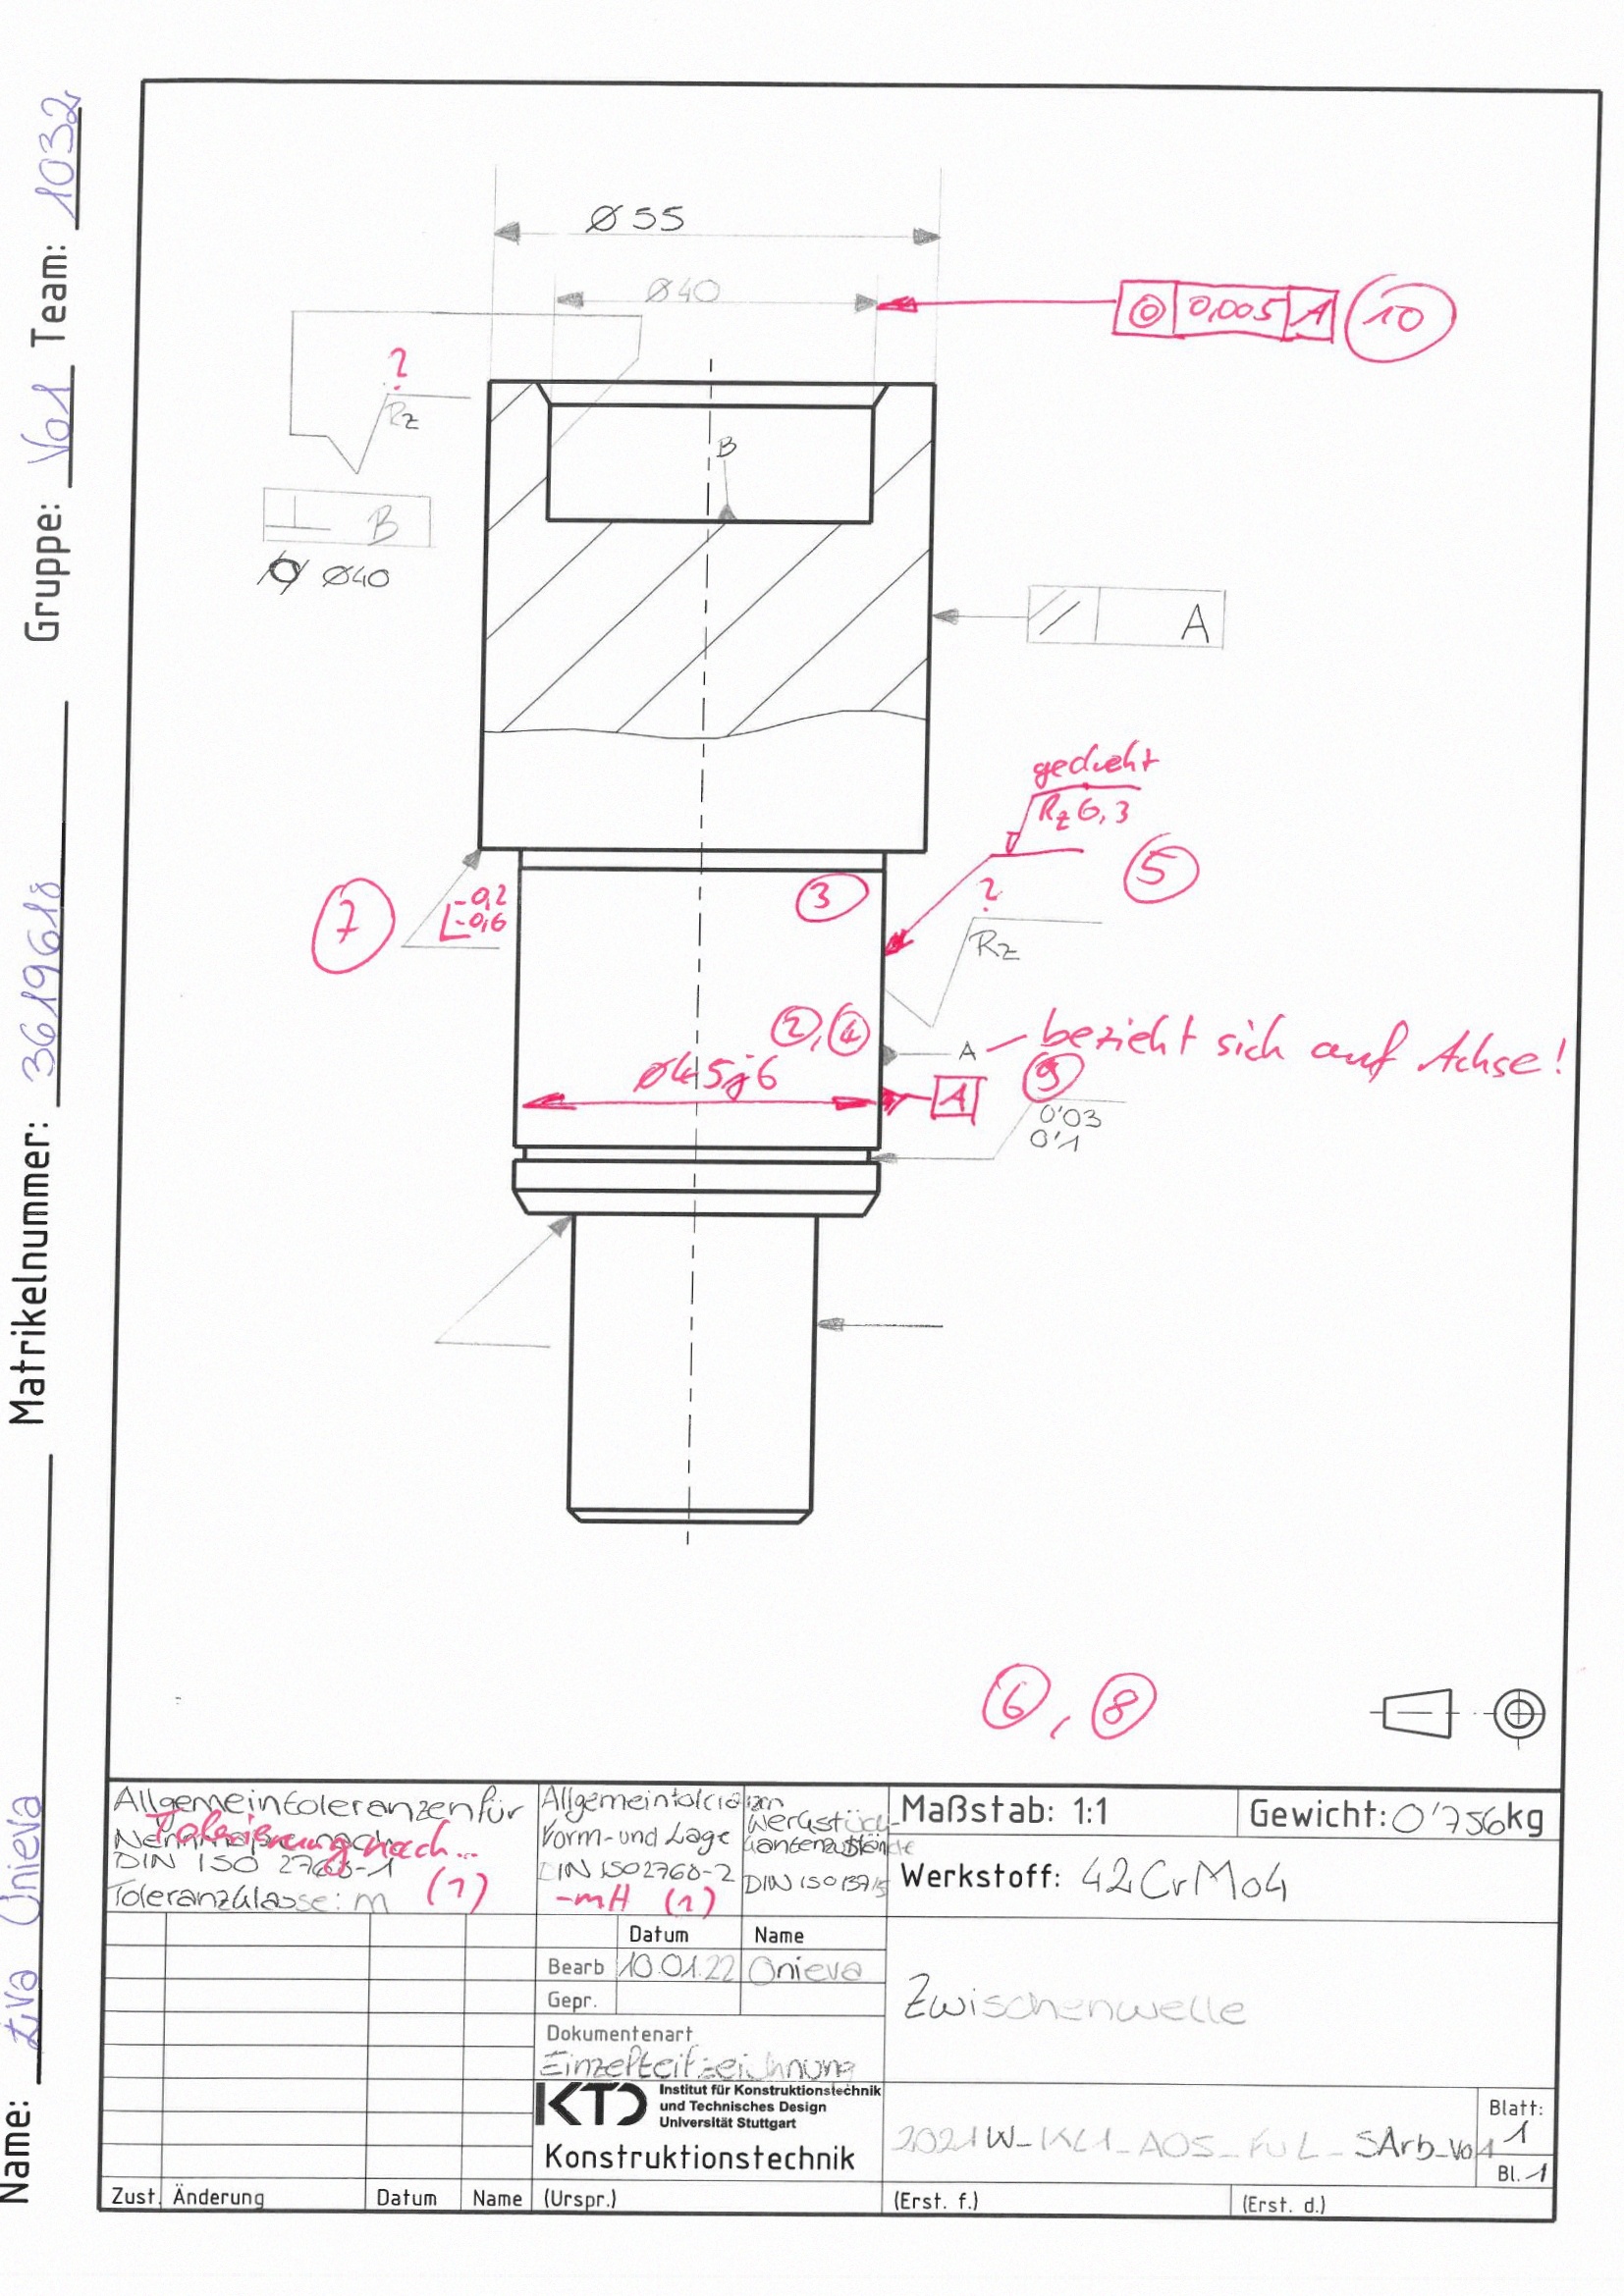 Name: Eiva Onieva Matrikelnummer: 3619618 Gruppe: Vo1 Team: 1032
Ø 55
Ø40
◎ 0,005 A
10
?
Rz
B
⊥ B
Ø40
// A
gedreht
Rz 6,3
5
3
7
-0,2
-0,6
?
Rz
2, 4
A – bezieht sich auf Achse!
9
Ø45j6
A
0'03
0'1
6, 8
Allgemeintoleranzen für
Tolerierung nach...
DIN ISO 2768-1
Toleranzklasse: m (1)
Allgemeintoleranzen
Form- und Lage
DIN ISO2768-2
-mH (1)
Werkstück-
kantenzustände
DIN ISO 13715
Maßstab: 1:1
Gewicht: 0'756kg
Werkstoff: 42CrMo4
Datum Name
Bearb 10.01.22 Onieva
Gepr.
Dokumentenart
Einzelteilzeichnung
Zwischenwelle
KTD
Institut für Konstruktionstechnik
und Technisches Design
Universität Stuttgart
Konstruktionstechnik
2021W_KL1_A05_FuL_SArb_Vo1
Blatt:
1
Bl. 1
Zust. Änderung Datum Name (Urspr.) (Erst. f.) (Erst. d.)